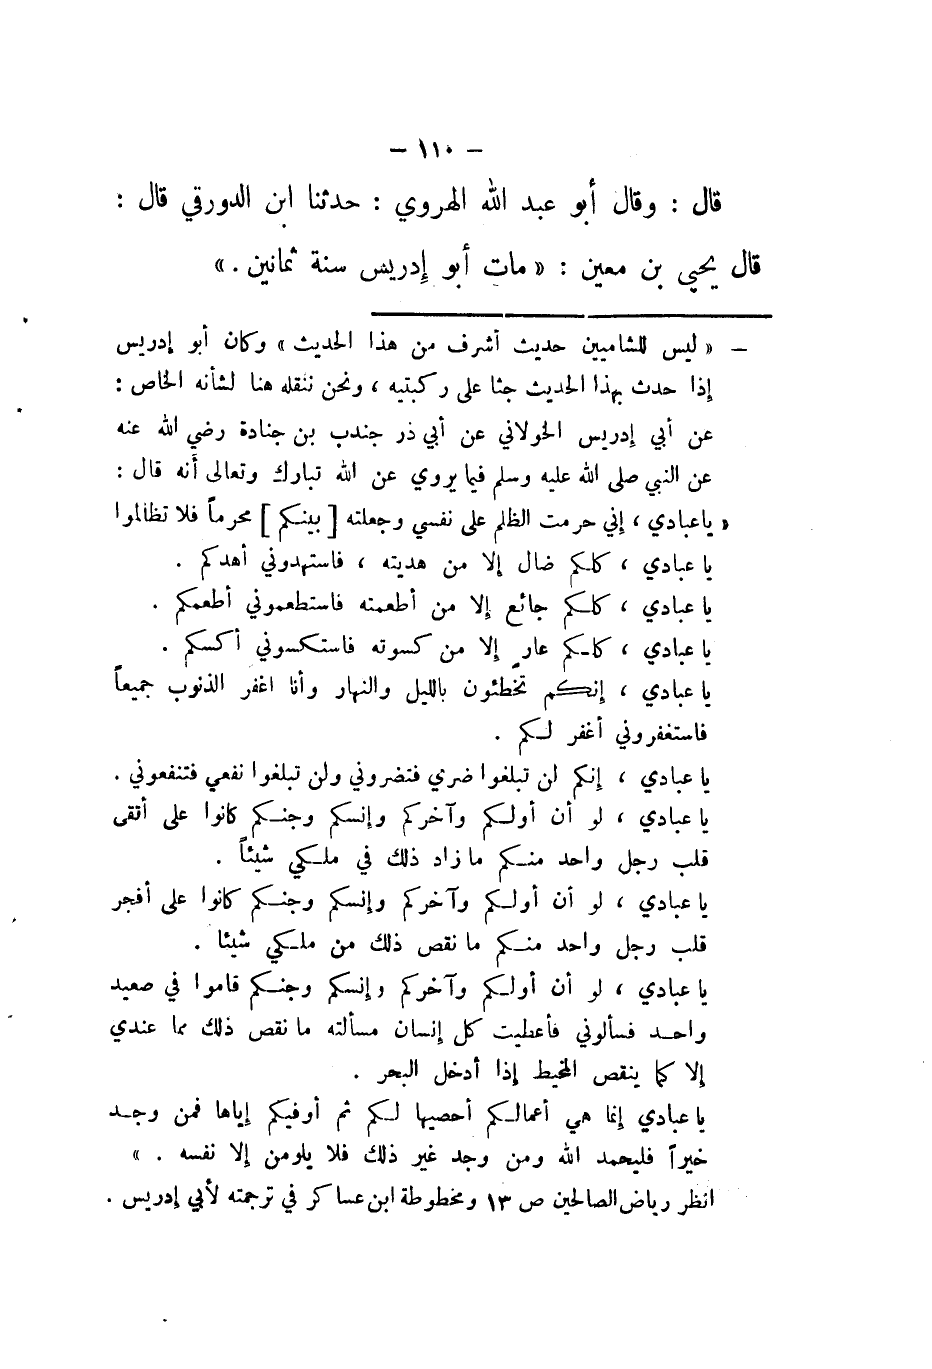 – ١١٠ –
قال : وقال أبو عبد الله الهروي : حدثنا ابن الدورقي قال :
قال يحيى بن معين : « مات أبو إدريس سنة ثمانين . »
– « ليس للشاميين حديث أشرف من هذا الحديث » وكان أبو إدريس
إذا حدث بهذا الحديث جثا على ركبتيه ، ونحن ننقله هنا لشأنه الخاص :
عن أبي إدريس الخولاني عن أبي ذر جندب بن جنادة رضي الله عنه
عن النبي صلى الله عليه وسلم فيما يروي عن الله تبارك وتعالى أنه قال :
« يا عبادي ، إني حرمت الظلم على نفسي وجعلته [ بينكم ] محرماً فلا تظالموا
يا عبادي ، كلكم ضال إلا من هديته ، فاستهدوني أهدكم .
يا عبادي ، كلكم جائع إلا من أطعمته فاستطعموني أطعمكم .
يا عبادي ، كلكم عارٍ إلا من كسوته فاستكسوني أكسكم .
يا عبادي ، إنكم تخطئون بالليل والنهار وأنا اغفر الذنوب جميعاً
فاستغفروني أغفر لكم .
يا عبادي ، إنكم لن تبلغوا ضري فتضروني ولن تبلغوا نفعي فتنفعوني .
يا عبادي ، لو أن أولكم وآخركم وإنسكم وجنكم كانوا على أتقى
قلب رجل واحد منكم ما زاد ذلك في ملكي شيئاً .
يا عبادي ، لو أن أولكم وآخركم وإنسكم وجنكم كانوا على أفجر
قلب رجل واحد منكم ما نقص ذلك من ملكي شيئا .
يا عبادي ، لو أن أولكم وآخركم وإنسكم وجنكم قاموا في صعيد
واحد فسألوني فأعطيت كل إنسان مسألته ما نقص ذلك مما عندي
إلا كما ينقص المخيط إذا أدخل البحر .
يا عبادي إنما هي أعمالكم أحصيها لكم ثم أوفيكم إياها فمن وجد
خيراً فليحمد الله ومن وجد غير ذلك فلا يلومن إلا نفسه . »
انظر رياض الصالحين ص ١٣ ومخطوطة ابن عساكر في ترجمته لأبي إدريس .